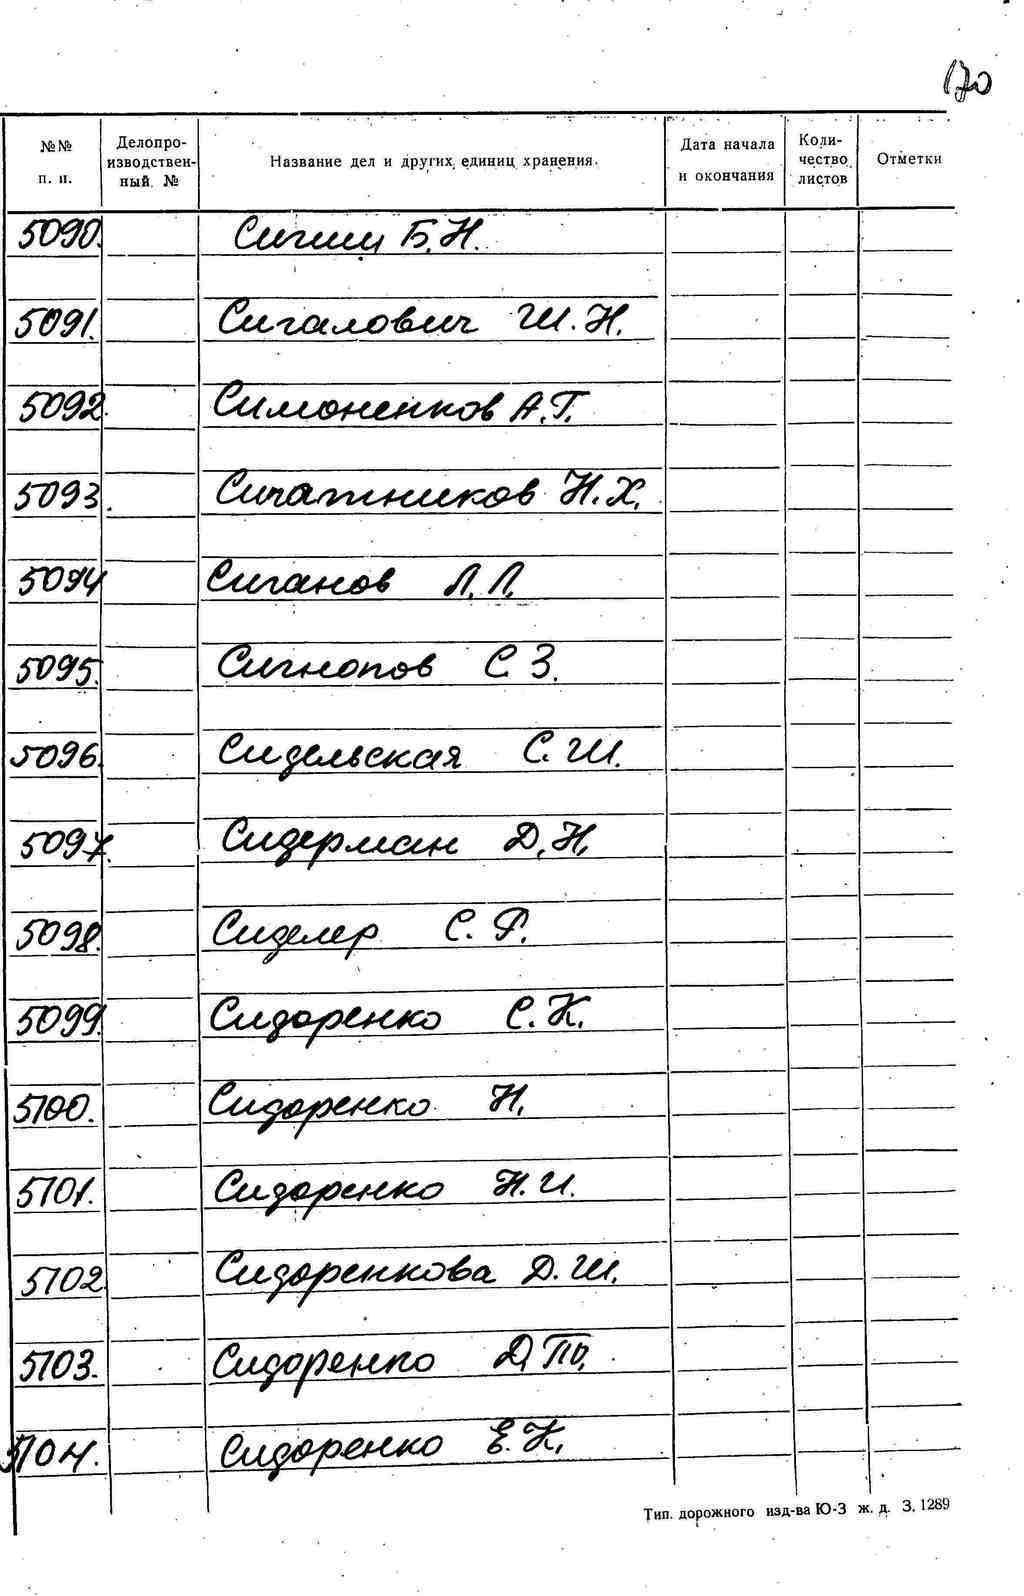 170
№№ п. п. Делопро-изводствен-ный. № Название дел и других единиц хранения. Дата начала и окончания Коли-чество листов Отметки
5090. Б.Н.
5091. Сигалович Ш.Н.
5092. Симоненков А.Г.
5093. Н.Х.
5094 Сиганов Л.Л.
5095. Сигнопов С.З.
5096. Сидельская С.Ш.
5097. Сидерман Д.Н.
5098. Сиделер С.Р.
5099. Сидоренко С.К.
5100. Сидоренко Н.
5101. Сидоренко Н.И.
5102. Сидоренкова Д.Ш.
5103. Сидоренко Д.
5104. Сидоренко Е.К.
Тип. дорожного изд-ва Ю-З ж. д. З. 1289